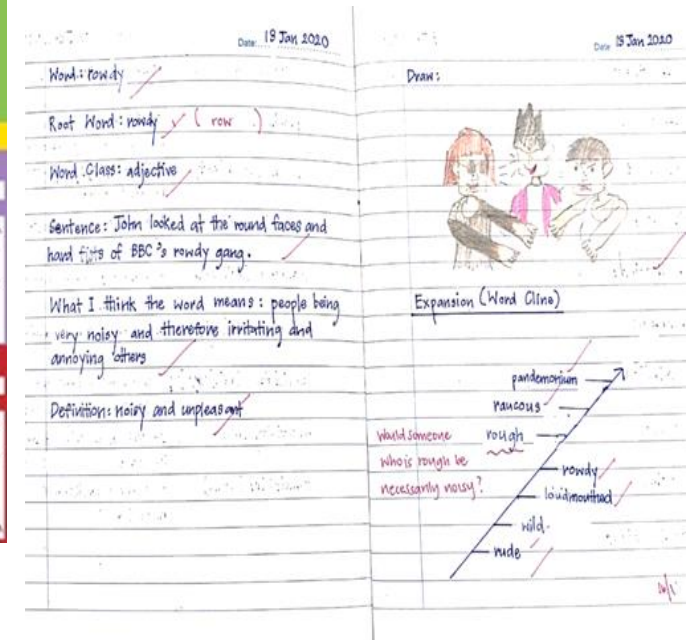 Date: 19 Jan 2020
Word: rowdy
Root Word: rowdy ( row )
Word Class: adjective
Sentence: John looked at the round faces and
hard fists of BBC's rowdy gang.
What I think the word means: people being
very noisy and therefore irritating and
annoying others
Definition: noisy and unpleasant
Date: 19 Jan 2020
Draw:
Expansion (Word Cline)
pandemonium
raucous
rough
rowdy
loudmouthed
wild
rude
Would someone
who is rough be
necessarily noisy?